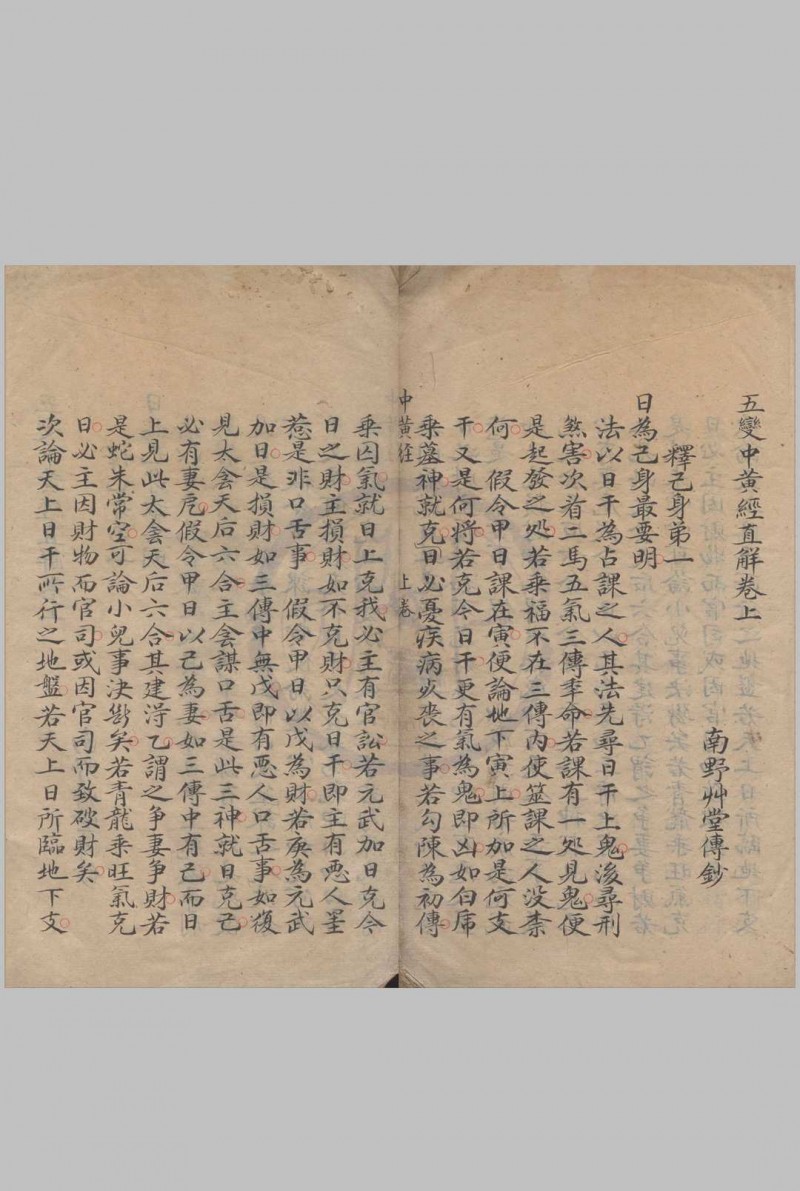 五變中黃經直解卷上
南野艸堂傳鈔
釋己身弟一
日為己身最要明
法以日干為占課之人其法先尋日干上鬼後尋刑
煞害次看二馬五氣三傳年命若課有一処見鬼便
是起發之処若乘福不在三傳內使筮課之人没柰
何 假令甲日課在寅便論地下寅上所加是何支
干又是何將若克今日干更有氣為鬼即凶如白虎
乘墓神就克日必憂疾病火喪之事若勾陳為初傳
中黃經 上卷
乘囚氣就日上克我必主有官訟若元武加日克今
日之財主損財如不克財只克日干即主有悪人星
惹是非口舌事 假令甲日以戊為財若庚為元武
加日是損財如三傳中無戊即有悪人口舌事如復
見太侌天后六合主侌謀口舌是此三神就日克己
必有妻戹假令甲日以己為妻如三傳中有己而日
上見此太侌天后六合其建淂乙謂之争妻争財若
是蛇朱常空可論小兒事決斷矣若青龍乘旺氣克
日必主因財物而官司或因官司而致破財矣
次論天上日干所行之地盤若天上日所臨地下支